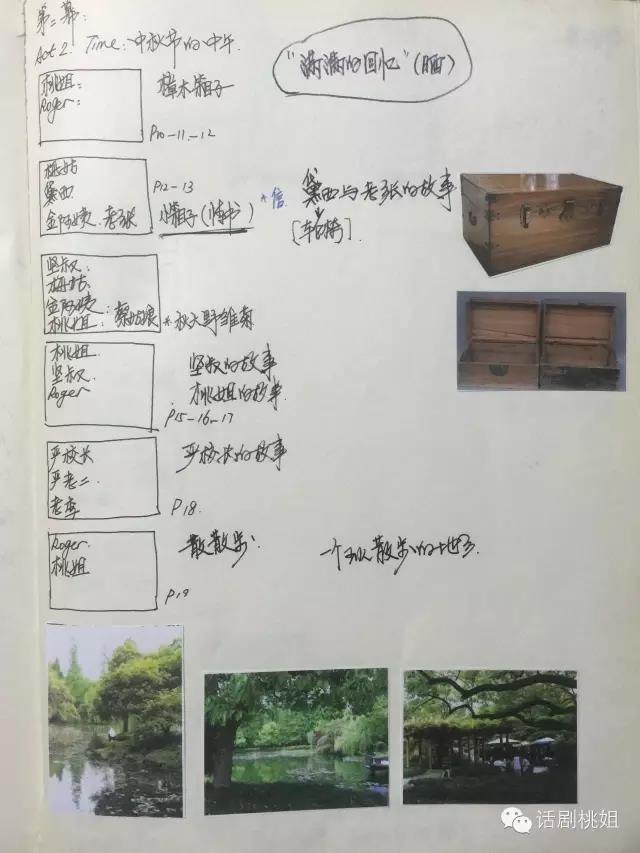 第二幕:
Act 2: Time: 中秋节的中午
"满满的回忆"(晒)
桃姐:
Roger:
樟木箱子
P10-11-12
桃姑
黛西
金阿姨. 老张
P12-13
小箱子(情书)
*信
黛西与老张的故事
[车轮椅].
坚叔:
梅姑:
金阿姨
桃姐: 蔡姑娘
*秋天野雏菊
桃姐
坚叔
Roger
坚叔的故事
桃姐的故事
P15-16-17
严校长
严老二.
老李
严校长的故事
P18.
Roger.
桃姐
散散步.
一个可以散步的地方.
P19
话剧桃姐